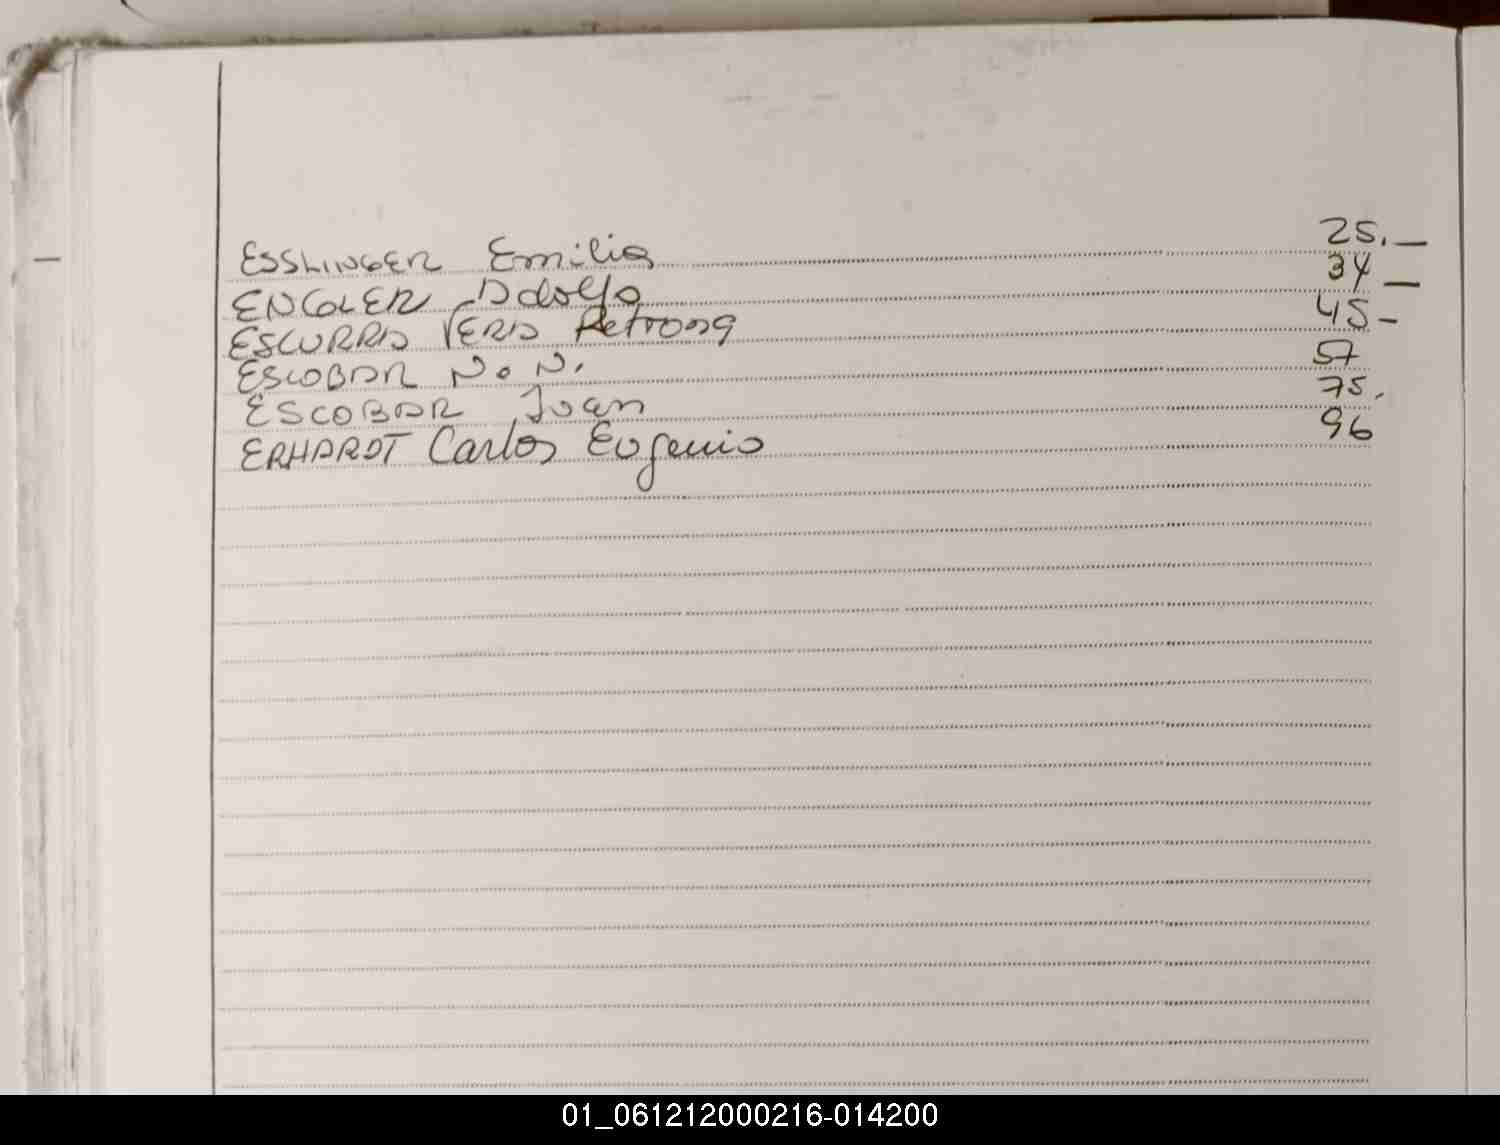 ESSLINGER Emilia 25.—
ENGLER Adolfo 34 —
ESCURRA VERA Petrona 45 -
ESCOBAR N. N. 57
ESCOBAR Juan 75.
ERHARDT Carlos Eugenio 96
01_061212000216-014200